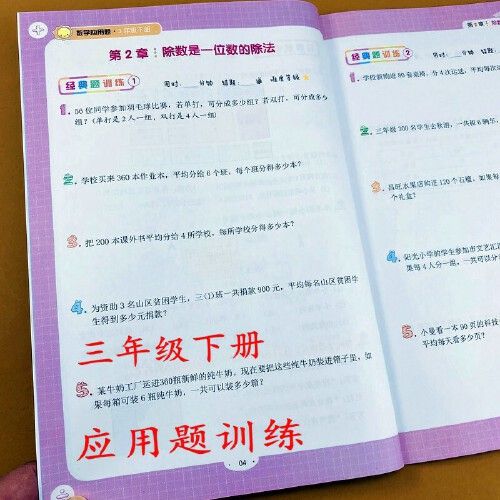 数学应用题·3年级下册
第2章：除数是一位数的除法
经典题训练 1
用时：分钟 错题：道 难度等级
1. 56位同学参加羽毛球比赛，若单打，可分成多少组？若双打，可分成多少
组？(单打是2人一组，双打是4人一组)
2. 学校买来360本作业本，平均分给6个班，每个班分得多少本？
3. 把200本课外书平均分给4所学校，每所学校分得多少本？
4. 为资助3名山区贫困学生，三(1)班一共捐款900元，平均每名山区贫困学
生得到多少元捐款？
三年级下册
5. 某牛奶工厂运进300瓶新鲜的纯牛奶，现在要把这些纯牛奶装进箱子里，如
果每箱可装6瓶纯牛奶，一共可以装多少箱？
应用题训练
04
第2章：除
经典题训练 2
用时：
1. 学校新购进80套桌椅，分4次运送，平均每次运
2. 三年级300名学生去秋游，一共租6辆车，
3. 昌旺水果店购进120个石榴，如果每
个礼盒？
4. 阳光小学的学生参加市文艺汇
果每4人分一组，一共可以分
5. 小曼看一本90页的科技
平均每天看多少页？